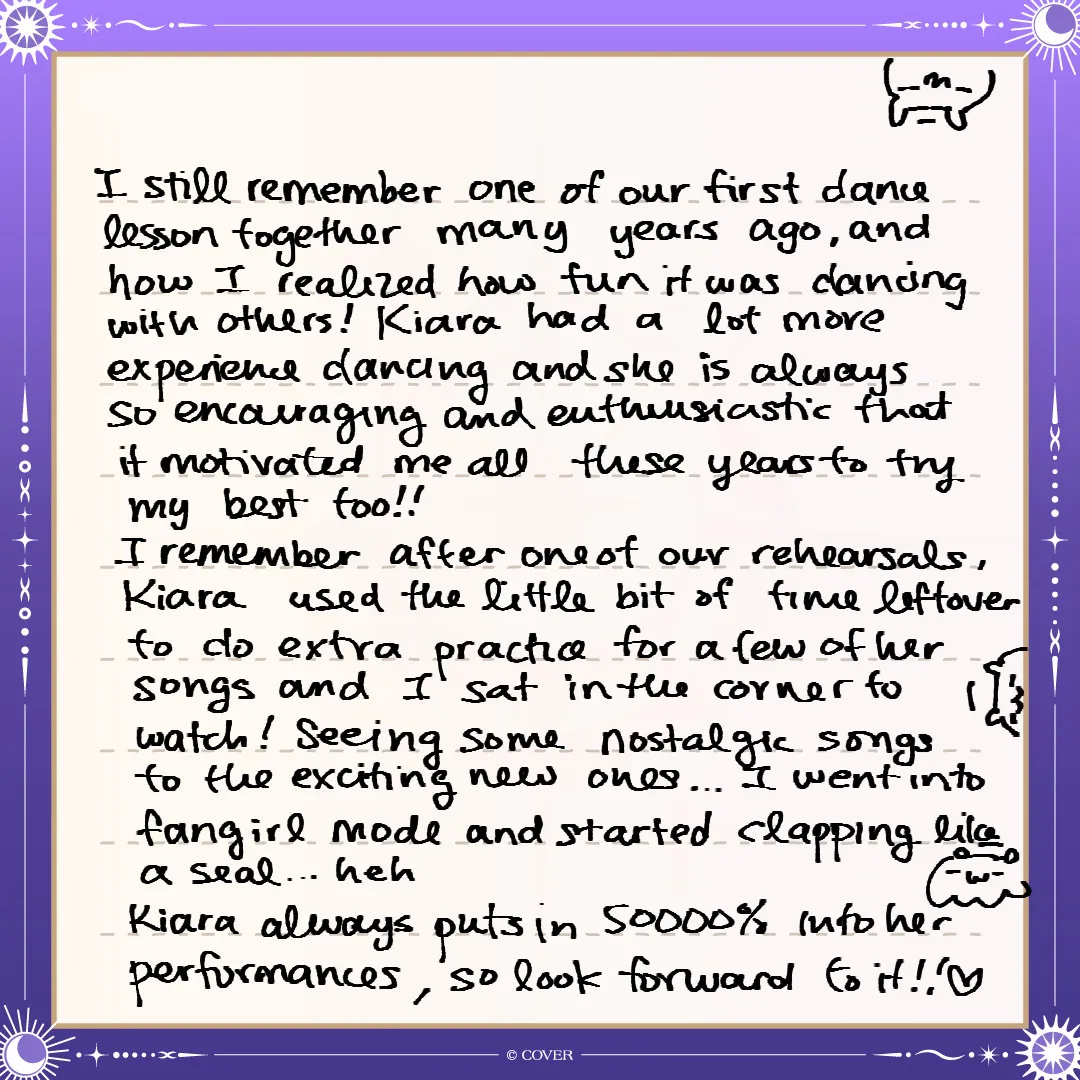 I still remember one of our first dance
lesson together many years ago, and
how I realized how fun it was dancing
with others! Kiara had a lot more
experience dancing and she is always
so encouraging and enthusiastic that
it motivated me all these years to try
my best too!!
I remember after one of our rehearsals,
Kiara used the little bit of time leftover
to do extra practice for a few of her
songs and I sat in the corner to
watch! Seeing some nostalgic songs
to the exciting new ones... I went into
fangirl mode and started clapping like
a seal... heh
Kiara always puts in 50000% into her
performances, so look forward to it!!♡
© COVER